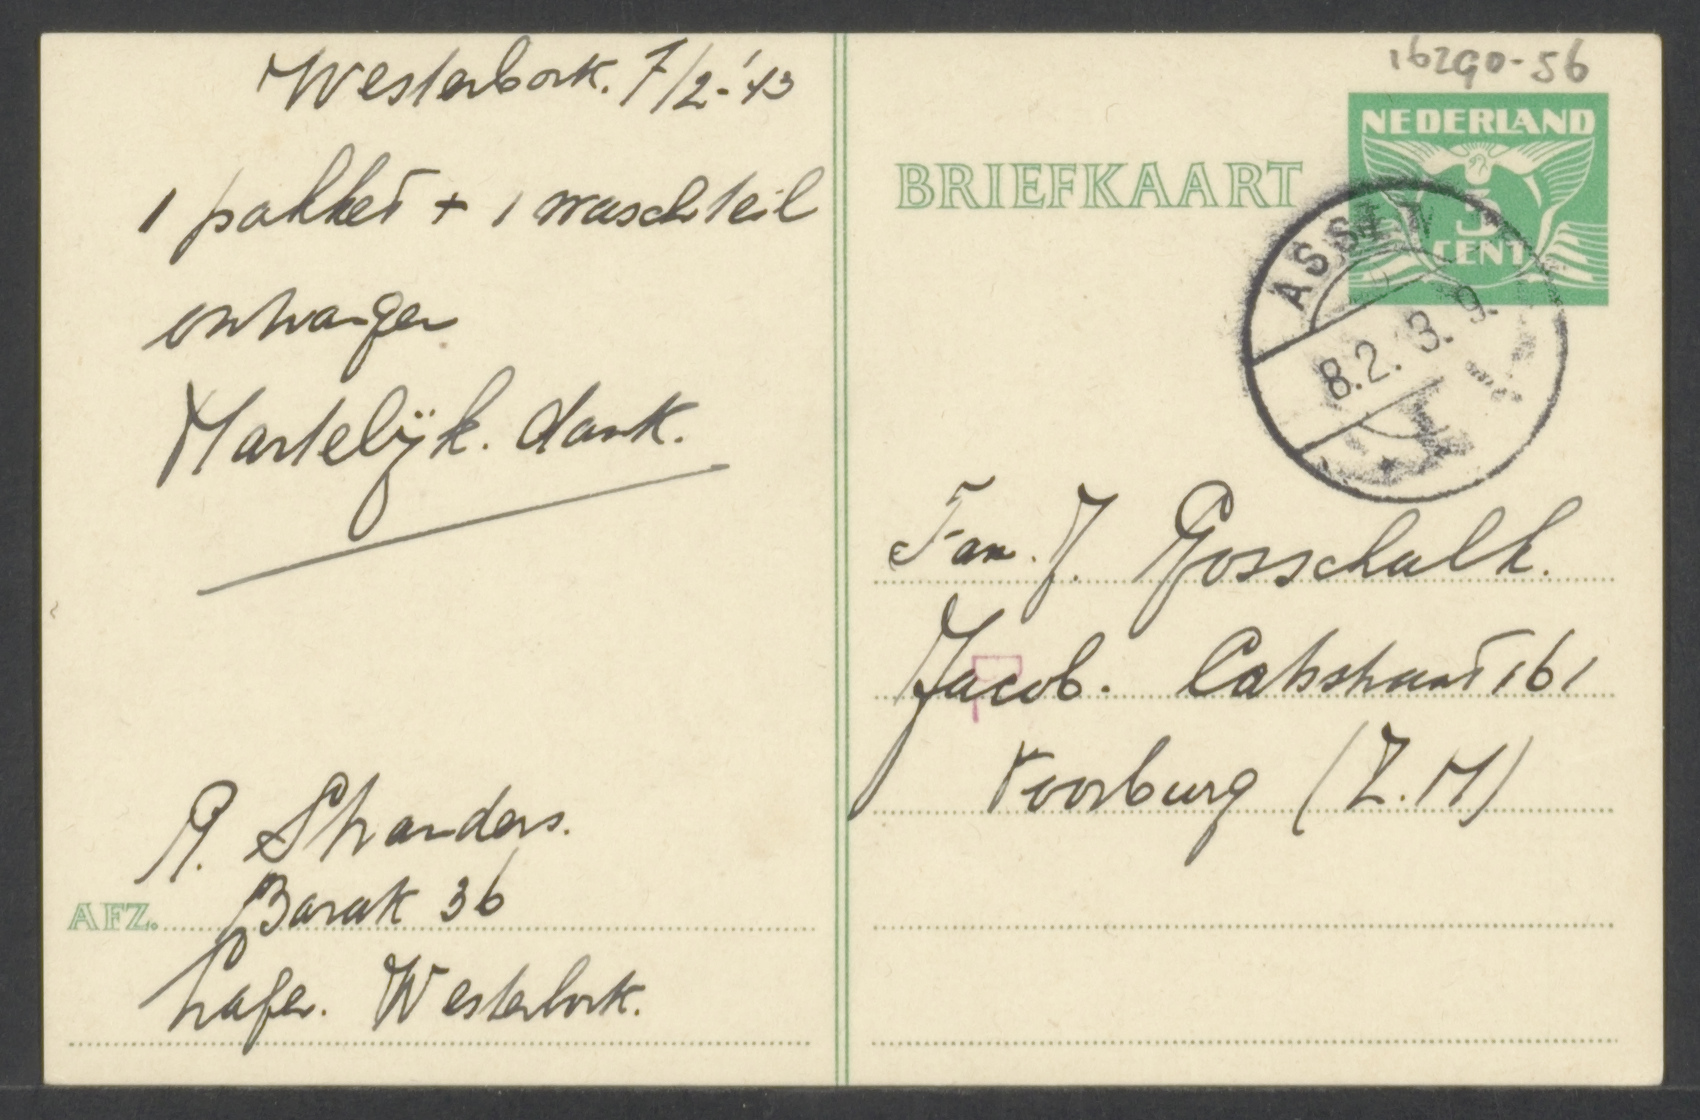 Westerbork. 7/2-'43
1 pakket + 1 waschteil
ontvangen
Hartelijk. dank.
R. Stranders.
AFZ. Barak 36
Lager. Westerbork.
16290-56
NEDERLAND
5
CENT
BRIEFKAART
ASSEN
8.2. 3. 9.
Fam. J. Gosschalk.
Jacob. Catsstraat 161
Voorburg (Z.H)